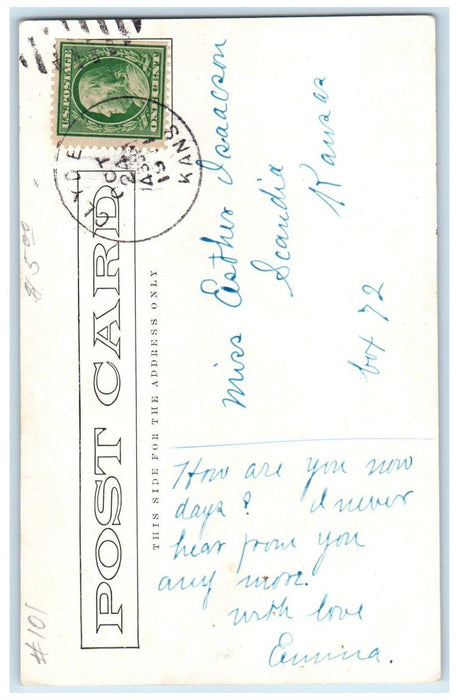 U.S. POSTAGE
ONE CENT
CLYDE
OCT
KANS
POST CARD
THIS SIDE FOR THE ADDRESS ONLY
Miss Esther Isaacson
Scandia
Kansas
box 72
How are you now
days? I never
hear from you
any more.
with love
Emma.
$5.00
#101